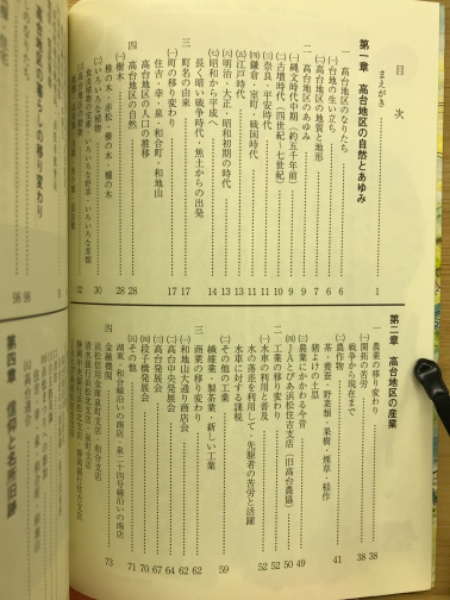 目次
まえがき……1
第一章 高台地区の自然とあゆみ
一 高台地区のなりたち……6
㈠台地の生い立ち……6
㈡高台地区の地質と地形……7
二 高台地区のあゆみ……9
㈠縄文時代中期（約五千年前）……9
㈡古墳時代（四世紀～七世紀）……10
㈢奈良・平安時代……11
㈣鎌倉・室町・戦国時代……11
㈤江戸時代……13
㈥明治・大正・昭和初期の時代……13
㈦昭和から平成へ……14
長く暗い戦争時代・焦土からの出発
三 町名の由来
㈠町の移り変わり……17
住吉・幸・泉・和合町・和地山
高台地区の人口の推移
四 高台地区の自然……28
㈠樹木……28
椎の木・赤松・欅の木・楠の木
㈡いろいろな植物……30
第二章 高台地区の産業
一 農業の移り変わり……38
㈠開拓の移り変わり……38
戦争から現在まで
㈡農作物……41
茶・養蚕・野菜類・果樹・煙草・稲作
猪よけの土塁
㈢農業にかかわる今昔……49
㈣JAとぴあ浜松住吉支店（旧高台農協）……50
二 工業の移り変わり……52
㈠水車の利用と普及……52
水の落差を利用して・先駆者の苦労と活躍
水車に対する課税
㈡その他の工業……59
繊維業・製茶業・新しい工業
三 商業の移り変わり……62
㈠和地山大通り商店会……62
㈡高台中央発展会……64
㈢高台発展会……67
㈣段子橋発展会……70
㈤その他……71
湖東・和合線沿いの商店・泉二十四号線沿いの商店
四 金融機関……73
浜松信用金庫泉町支店・和合支店